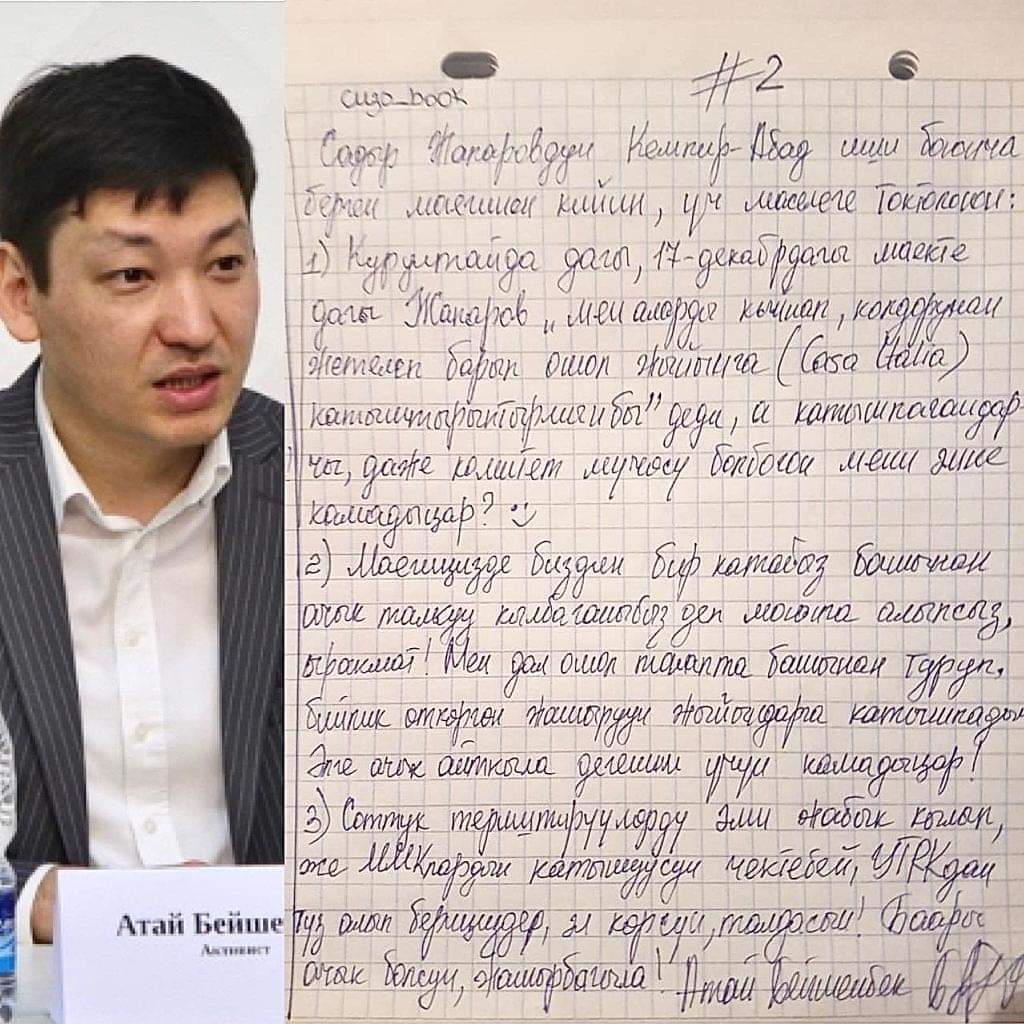 #2
сизо_book
Садыр Жапаровдун Кемпир-Абад иши боюнча
берген маегинен кийин, үч маселеге токтолоюн:
1) Курултайда дагы, 17-декабрдагы маекте
дагы Жапаров „мен аларды кычнап, колдорунан
жетелеп барып ошол жыйынга (Casa Italia)
катыштырыптырмынбы" деди, а катышпагандар-
чы, даже комитет мүчөсү болбогон мени эмне
камадыңар? :)
2) Маегиңизде бизден бир катабыз башынан
ачык талкуу кылбаганыбыз деп мойнуңузга алыпсыз,
ыракмат! Мен дал ошол талапта башынан туруп,
бийлик өткөргөн жашыруун жыйындарга катышпадым
Эле ачык айткыла дегеним үчүн камадыңар!
3) Соттук териштирүүлөрдү эми жабык кылып,
же ММКлардын катышуусун чектебей, УТРКдан
түз алып бериңиздер, эл көрсүн, талдасын! Баары
ачык болсун, жашырбагыла! Атай Бейшенбек
Атай Бейше
Активист